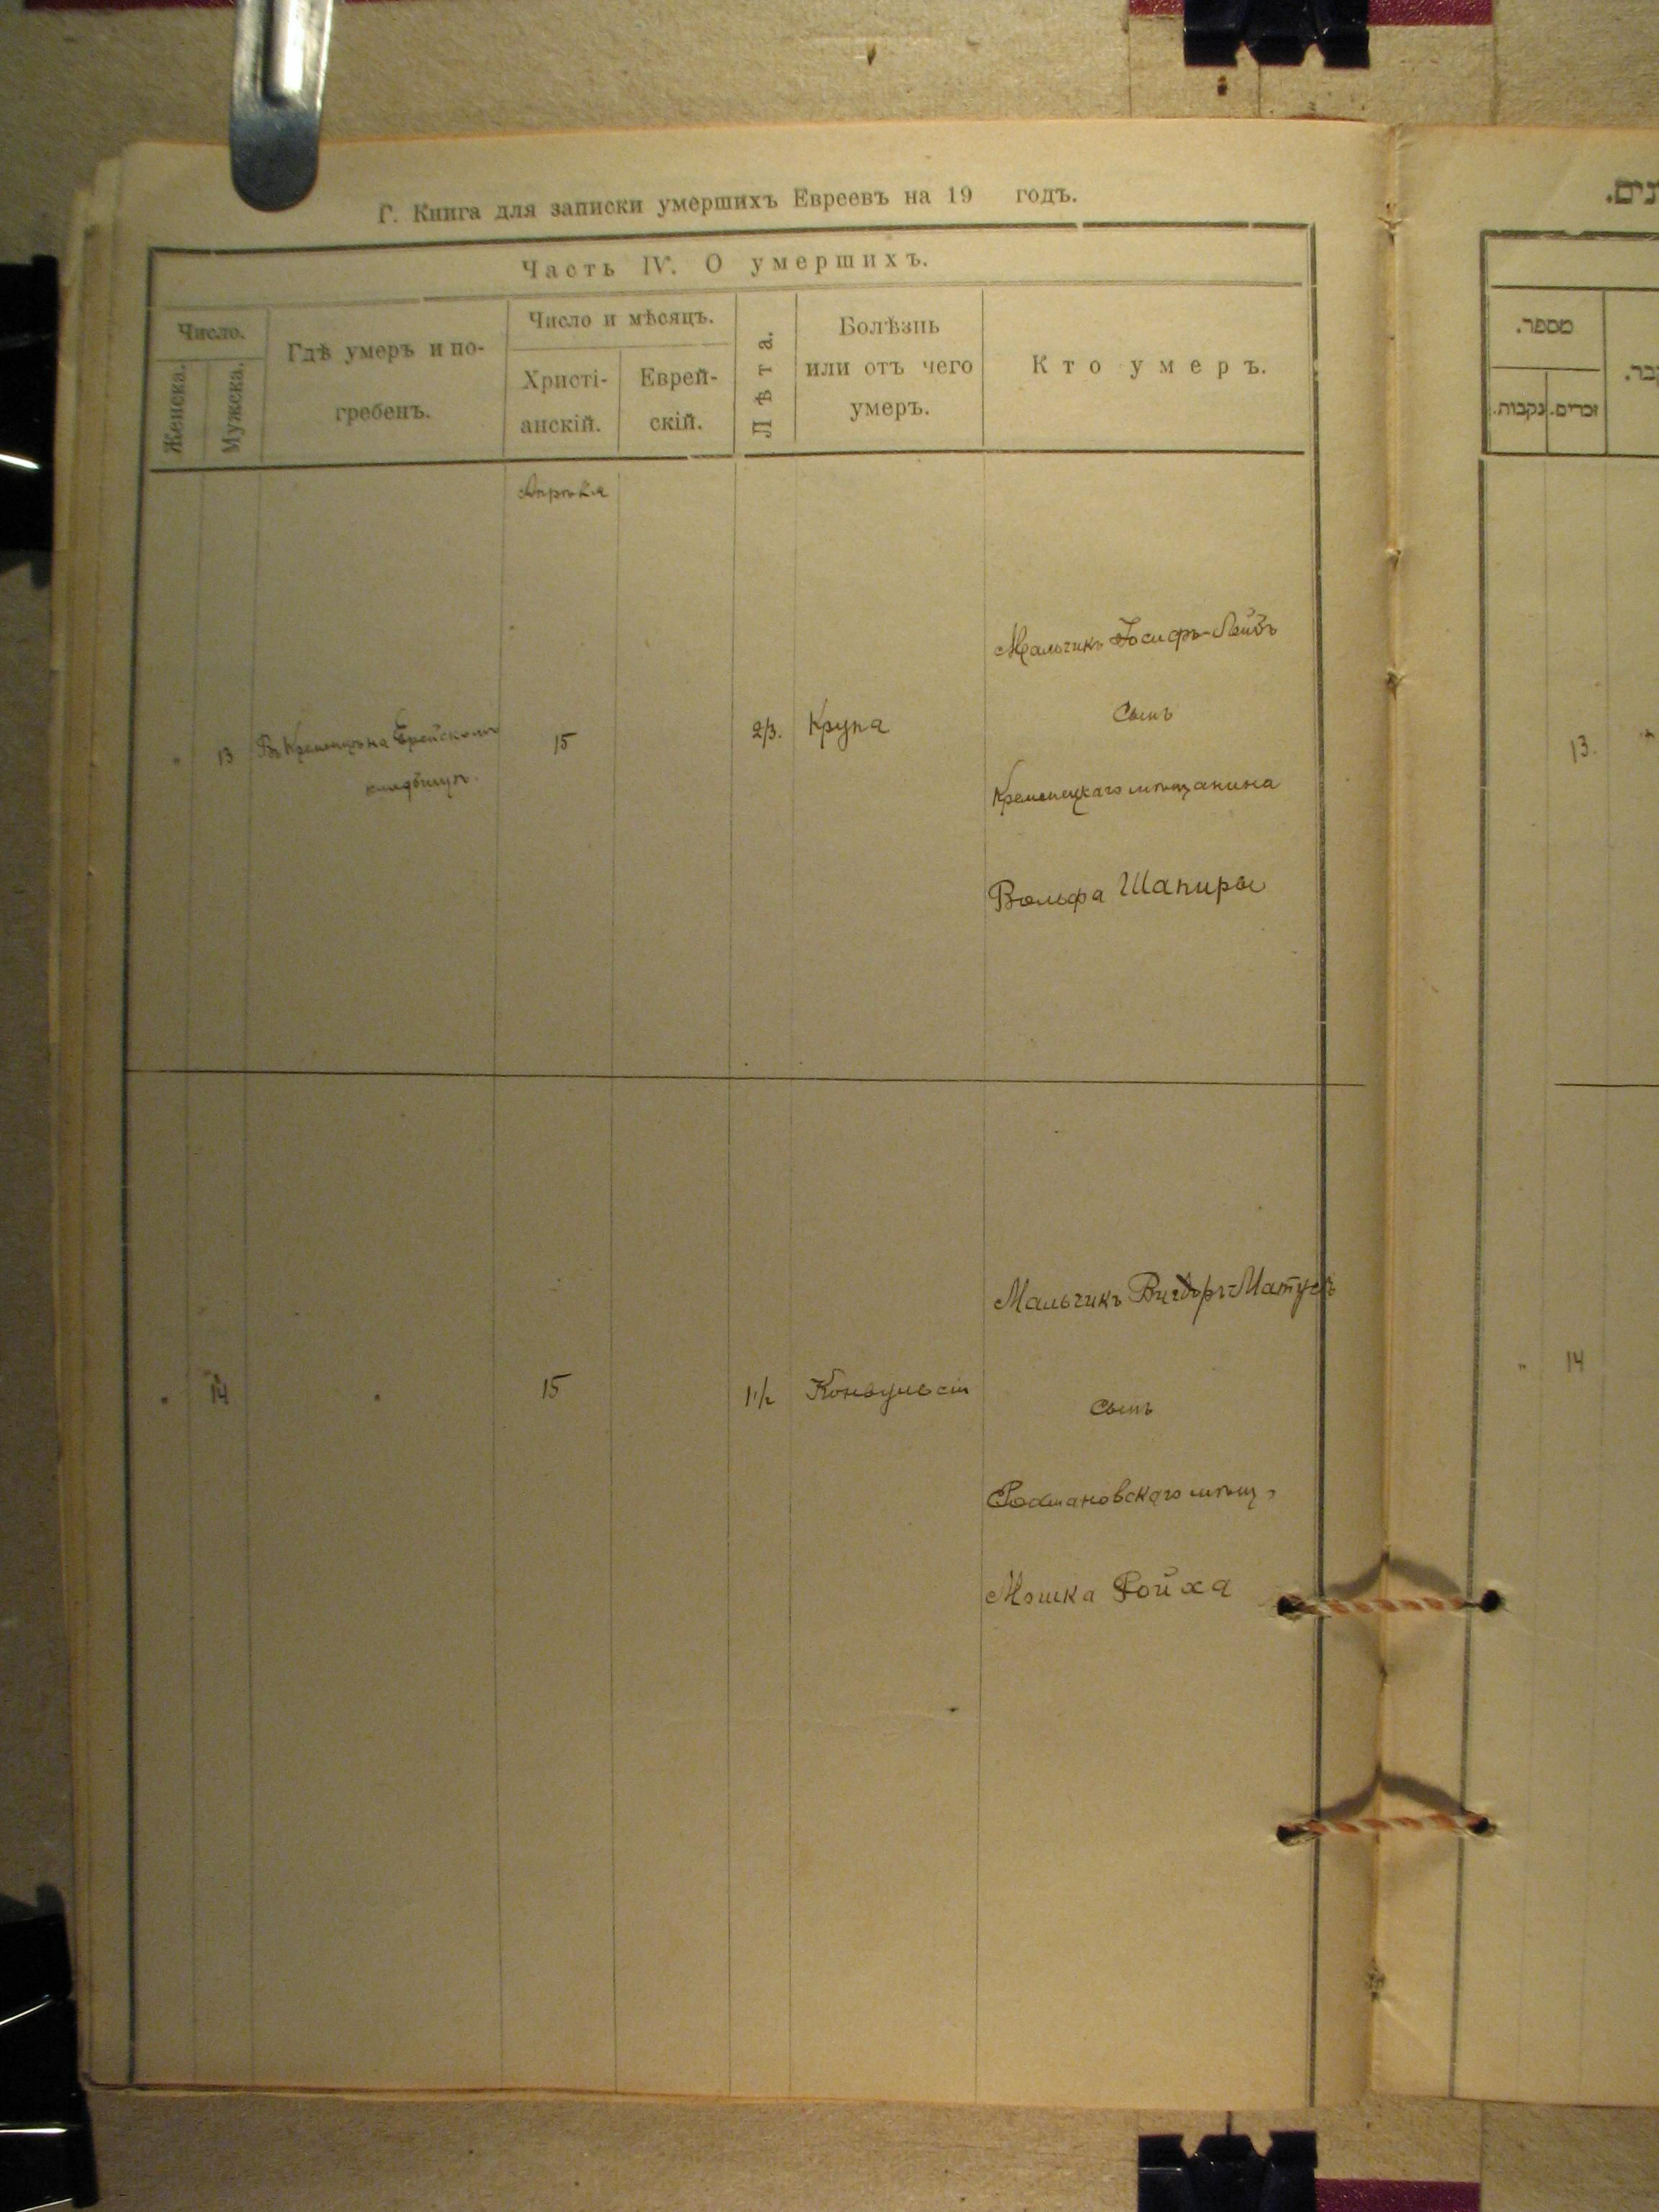 Г. Книга для записки умершихъ Евреевъ на 19 годъ.
Часть IV. О умершихъ.
Число.
Женска.
Мужска.
Гдѣ умеръ и по-
гребенъ.
Число и мѣсяцъ.
Христі-
анскій.
Еврей-
скій.
Лѣта.
Болѣзнь
или отъ чего
умеръ.
Кто умеръ.
Апрѣля
" 13 Въ Кременцѣ на Еврейскомъ
кладбищѣ.
15
2/3.
Крупа
Мальчикъ Іосифъ-Лейбъ
Сынъ
Кременецкаго мѣщанина
Вольфа Шапиры
" 14 " 15 1 1/2 Конвульсіи
Мальчикъ Вигдоръ-Матусъ
Сынъ
Рохмановскаго мѣщ.
Мошка Ройха
מספר.
נקבות.
זכרים.
13. "
" 14